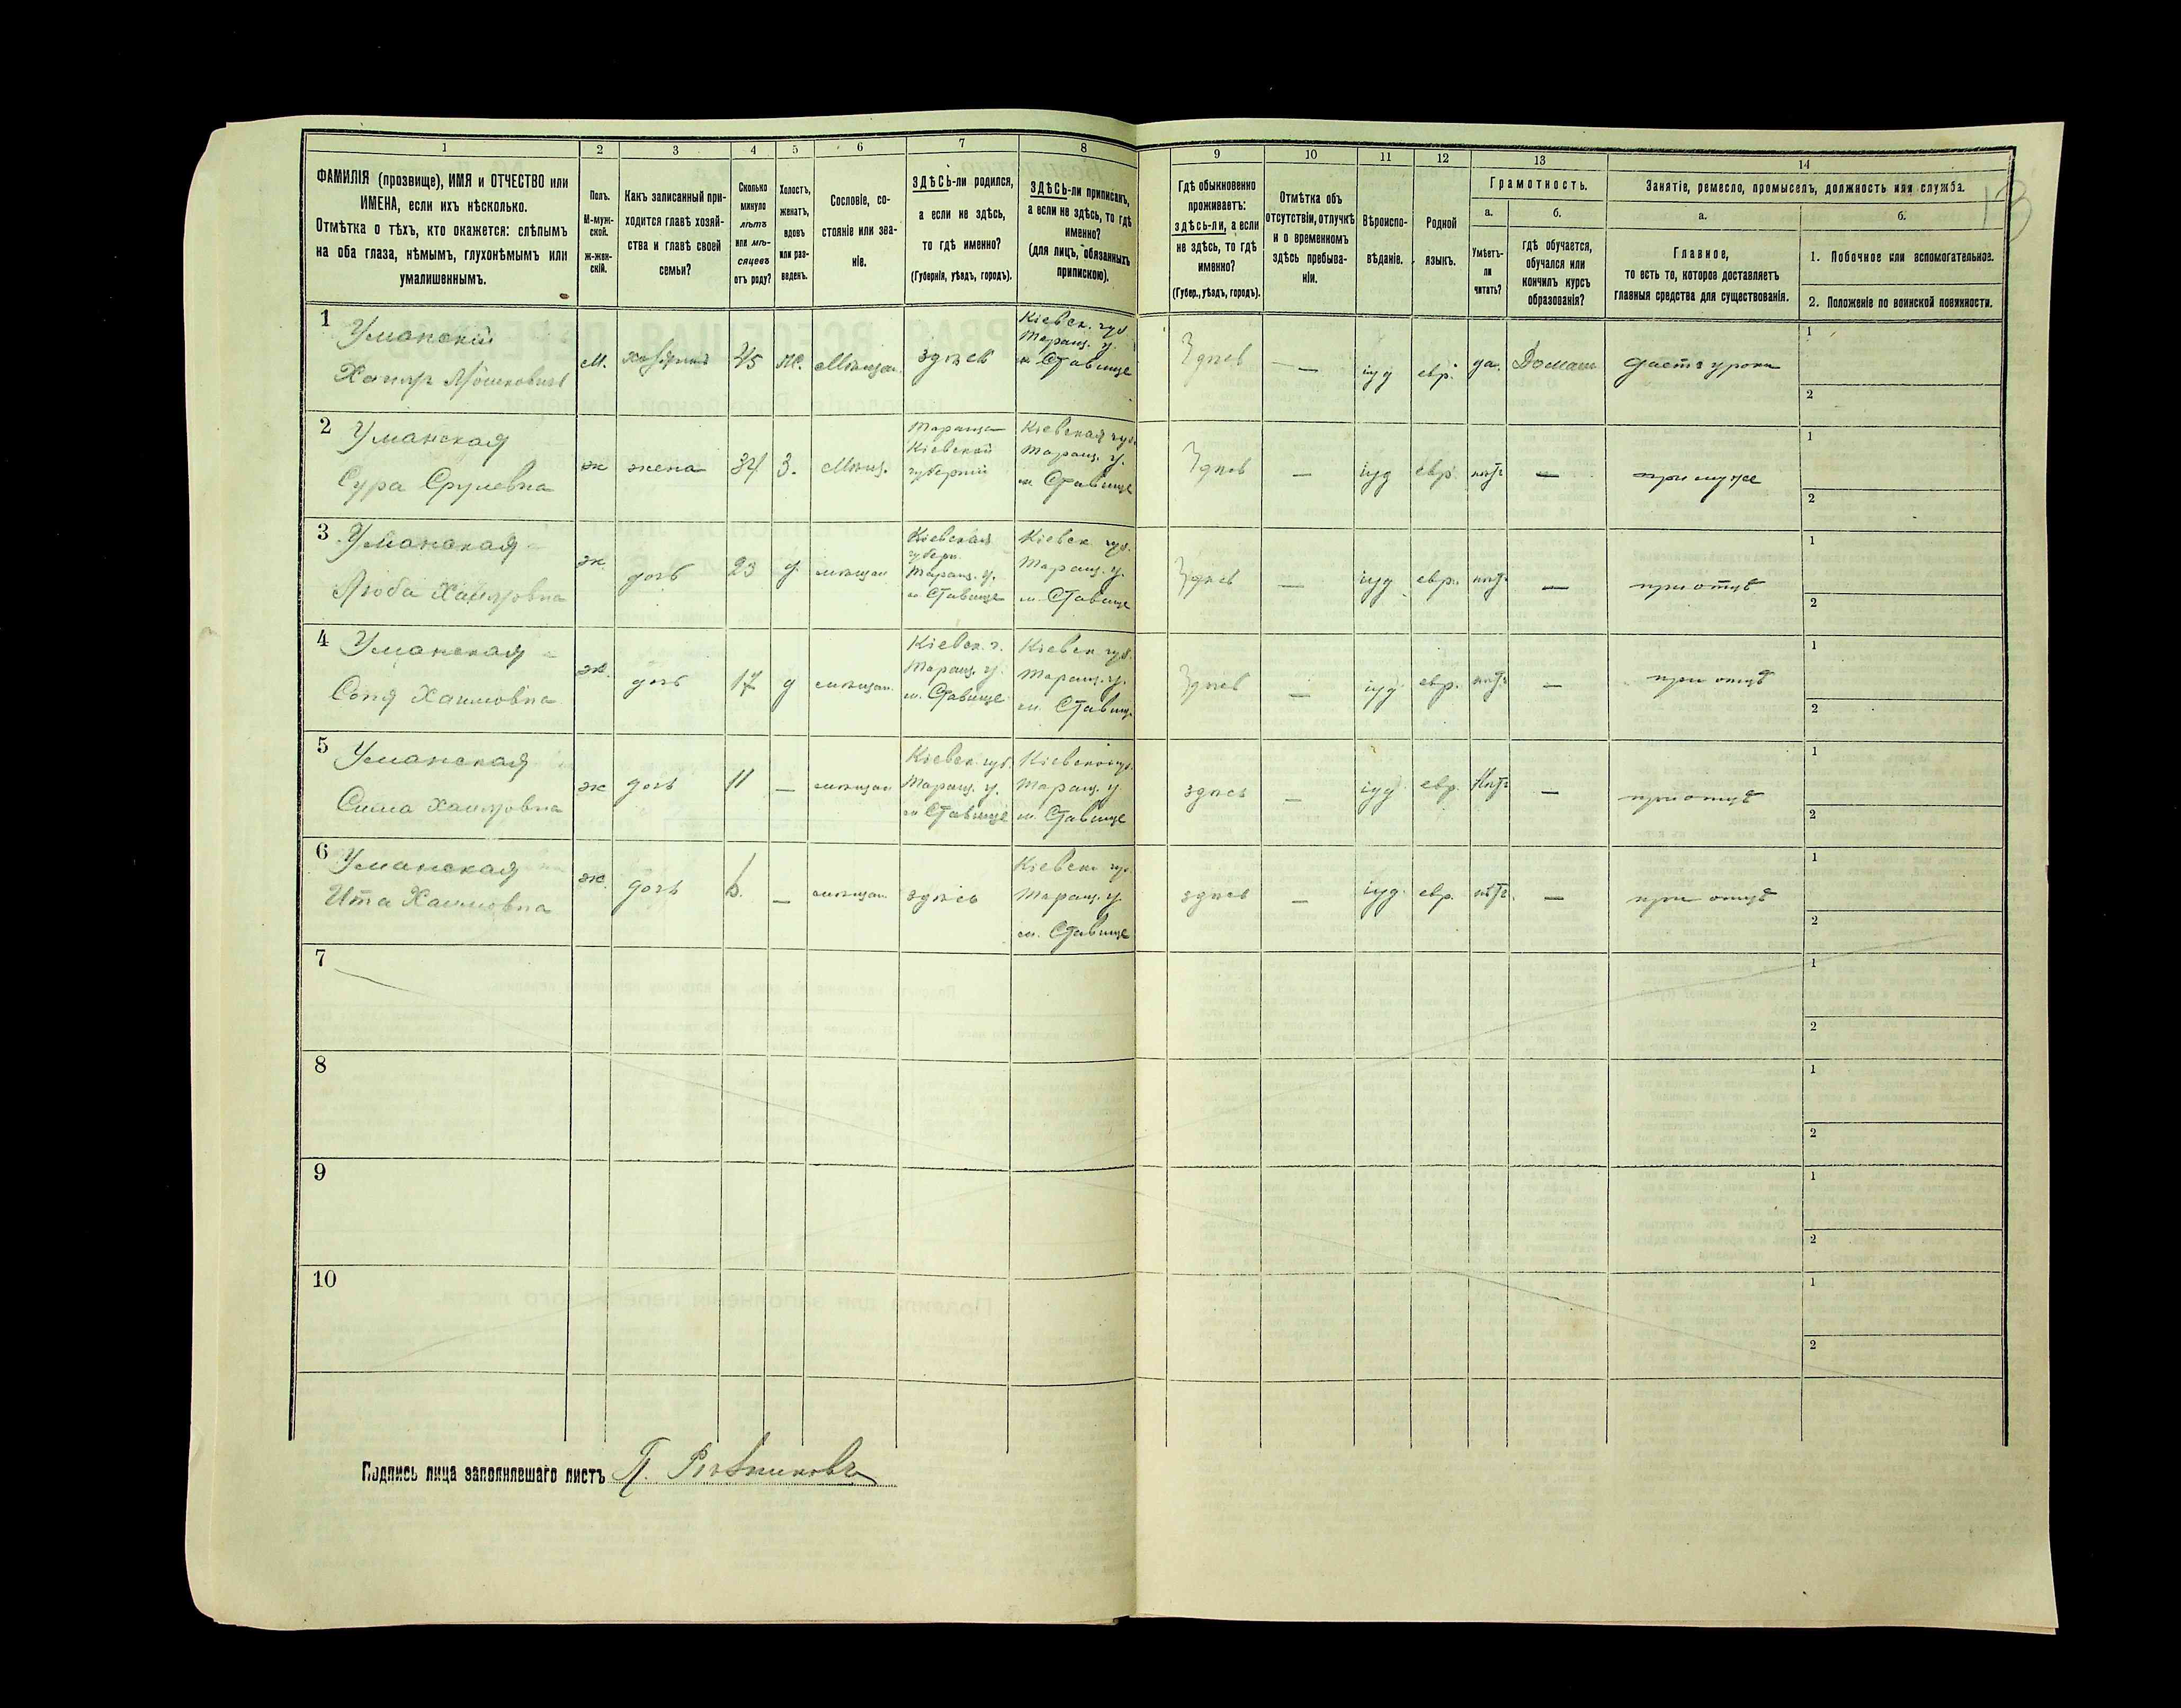 1
2
3
4
5
6
7
8
ФАМИЛІЯ (прозвище), ИМЯ и ОТЧЕСТВО или
ИМЕНА, если ихъ нѣсколько.
Отмѣтка о тѣхъ, кто окажется: слѣпымъ
на оба глаза, нѣмымъ, глухонѣмымъ или
умалишеннымъ.
Полъ.
М-муж-
ской.
ж-жен-
скій.
Какъ записанный при-
ходится главѣ хозяй-
ства и главѣ своей
семьи?
Сколько
минуло
лѣтъ
или мѣ-
сяцевъ
отъ роду?
Холостъ,
женатъ,
вдовъ
или раз-
веденъ.
Сословіе, со-
стояніе или зва-
ніе.
ЗДѢСЬ-ли родился,
а если не здѣсь,
то гдѣ именно?
(Губернія, уѣздъ, городъ).
ЗДѢСЬ-ли приписанъ,
а если не здѣсь, то гдѣ
именно?
(для лицъ, обязанныхъ
припискою).
9
10
11
12
13
14
Гдѣ обыкновенно
проживаетъ:
здѣсь-ли, а если
не здѣсь, то гдѣ
именно?
(Губер., уѣздъ, городъ).
Отмѣтка объ
отсутствіи, отлучкѣ
и о временномъ
здѣсь пребыва-
ніи.
Вѣроиспо-
вѣданіе.
Родной
языкъ.
Грамотность.
а.
б.
Умѣетъ-
ли
читать?
гдѣ обучается,
обучался или
кончилъ курсъ
образованія?
Занятіе, ремесло, промыселъ, должность или служба.
а.
б.
Главное,
то есть то, которое доставляетъ
главныя средства для существованія.
1. Побочное или вспомогательное.
2. Положеніе по воинской повинности.
13
1
Уманскій
Хаимъ Мошковичъ
м.
хозяинъ
45
ж.
мѣщан.
здѣсь
Кіевск. губ.
Таращ. у.
м. Ставище
Здѣсь
—
іуд
евр.
да.
Домаш.
даетъ уроки
1
2
2
Уманская
Сура Срулевна
ж
жена
34
З.
мѣщ.
Тараща
Кіевской
губерніи
Кіевская губ.
Таращ. у.
м. Ставище
Здѣсь
—
іуд
евр.
нѣтъ
—
при мужѣ
1
2
3
Уманская
Люба Хаимовна
ж.
дочь
23
д.
мѣщан
Кіевская
губерн.
Таращ. у.
м. Ставище
Кіевск. губ.
Таращ. у.
м. Ставище
Здѣсь
—
іуд
евр.
нѣтъ
—
при отцѣ
1
2
4
Уманская
Соня Хаимовна
ж.
дочь
17
д
мѣщан.
Кіевск. г.
Таращ. у.
м. Ставище
Кіевск. губ.
Таращ. у.
м. Ставищ.
Здѣсь
—
іуд
евр.
нѣтъ
—
при отцѣ
1
2
5
Уманская
Сима Хаимовна
ж
дочь
11
—
мѣщан
Кіевск. губ.
Таращ. у.
м Ставище
Кіевской губ.
Таращ. у.
м. Ставище
здѣсь
—
іуд
евр.
Нѣтъ
—
при отцѣ
1
2
6
Уманская
Ита Хаимовна
ж.
дочь
6.
—
мѣщан.
здѣсь
Кіевск. губ.
Таращ. у.
м. Ставище
здѣсь
—
іуд.
евр.
нѣтъ.
—
при отцѣ
1
2
7
1
2
8
1
2
9
1
2
10
1
2
Подпись лица заполнявшаго листъ П.